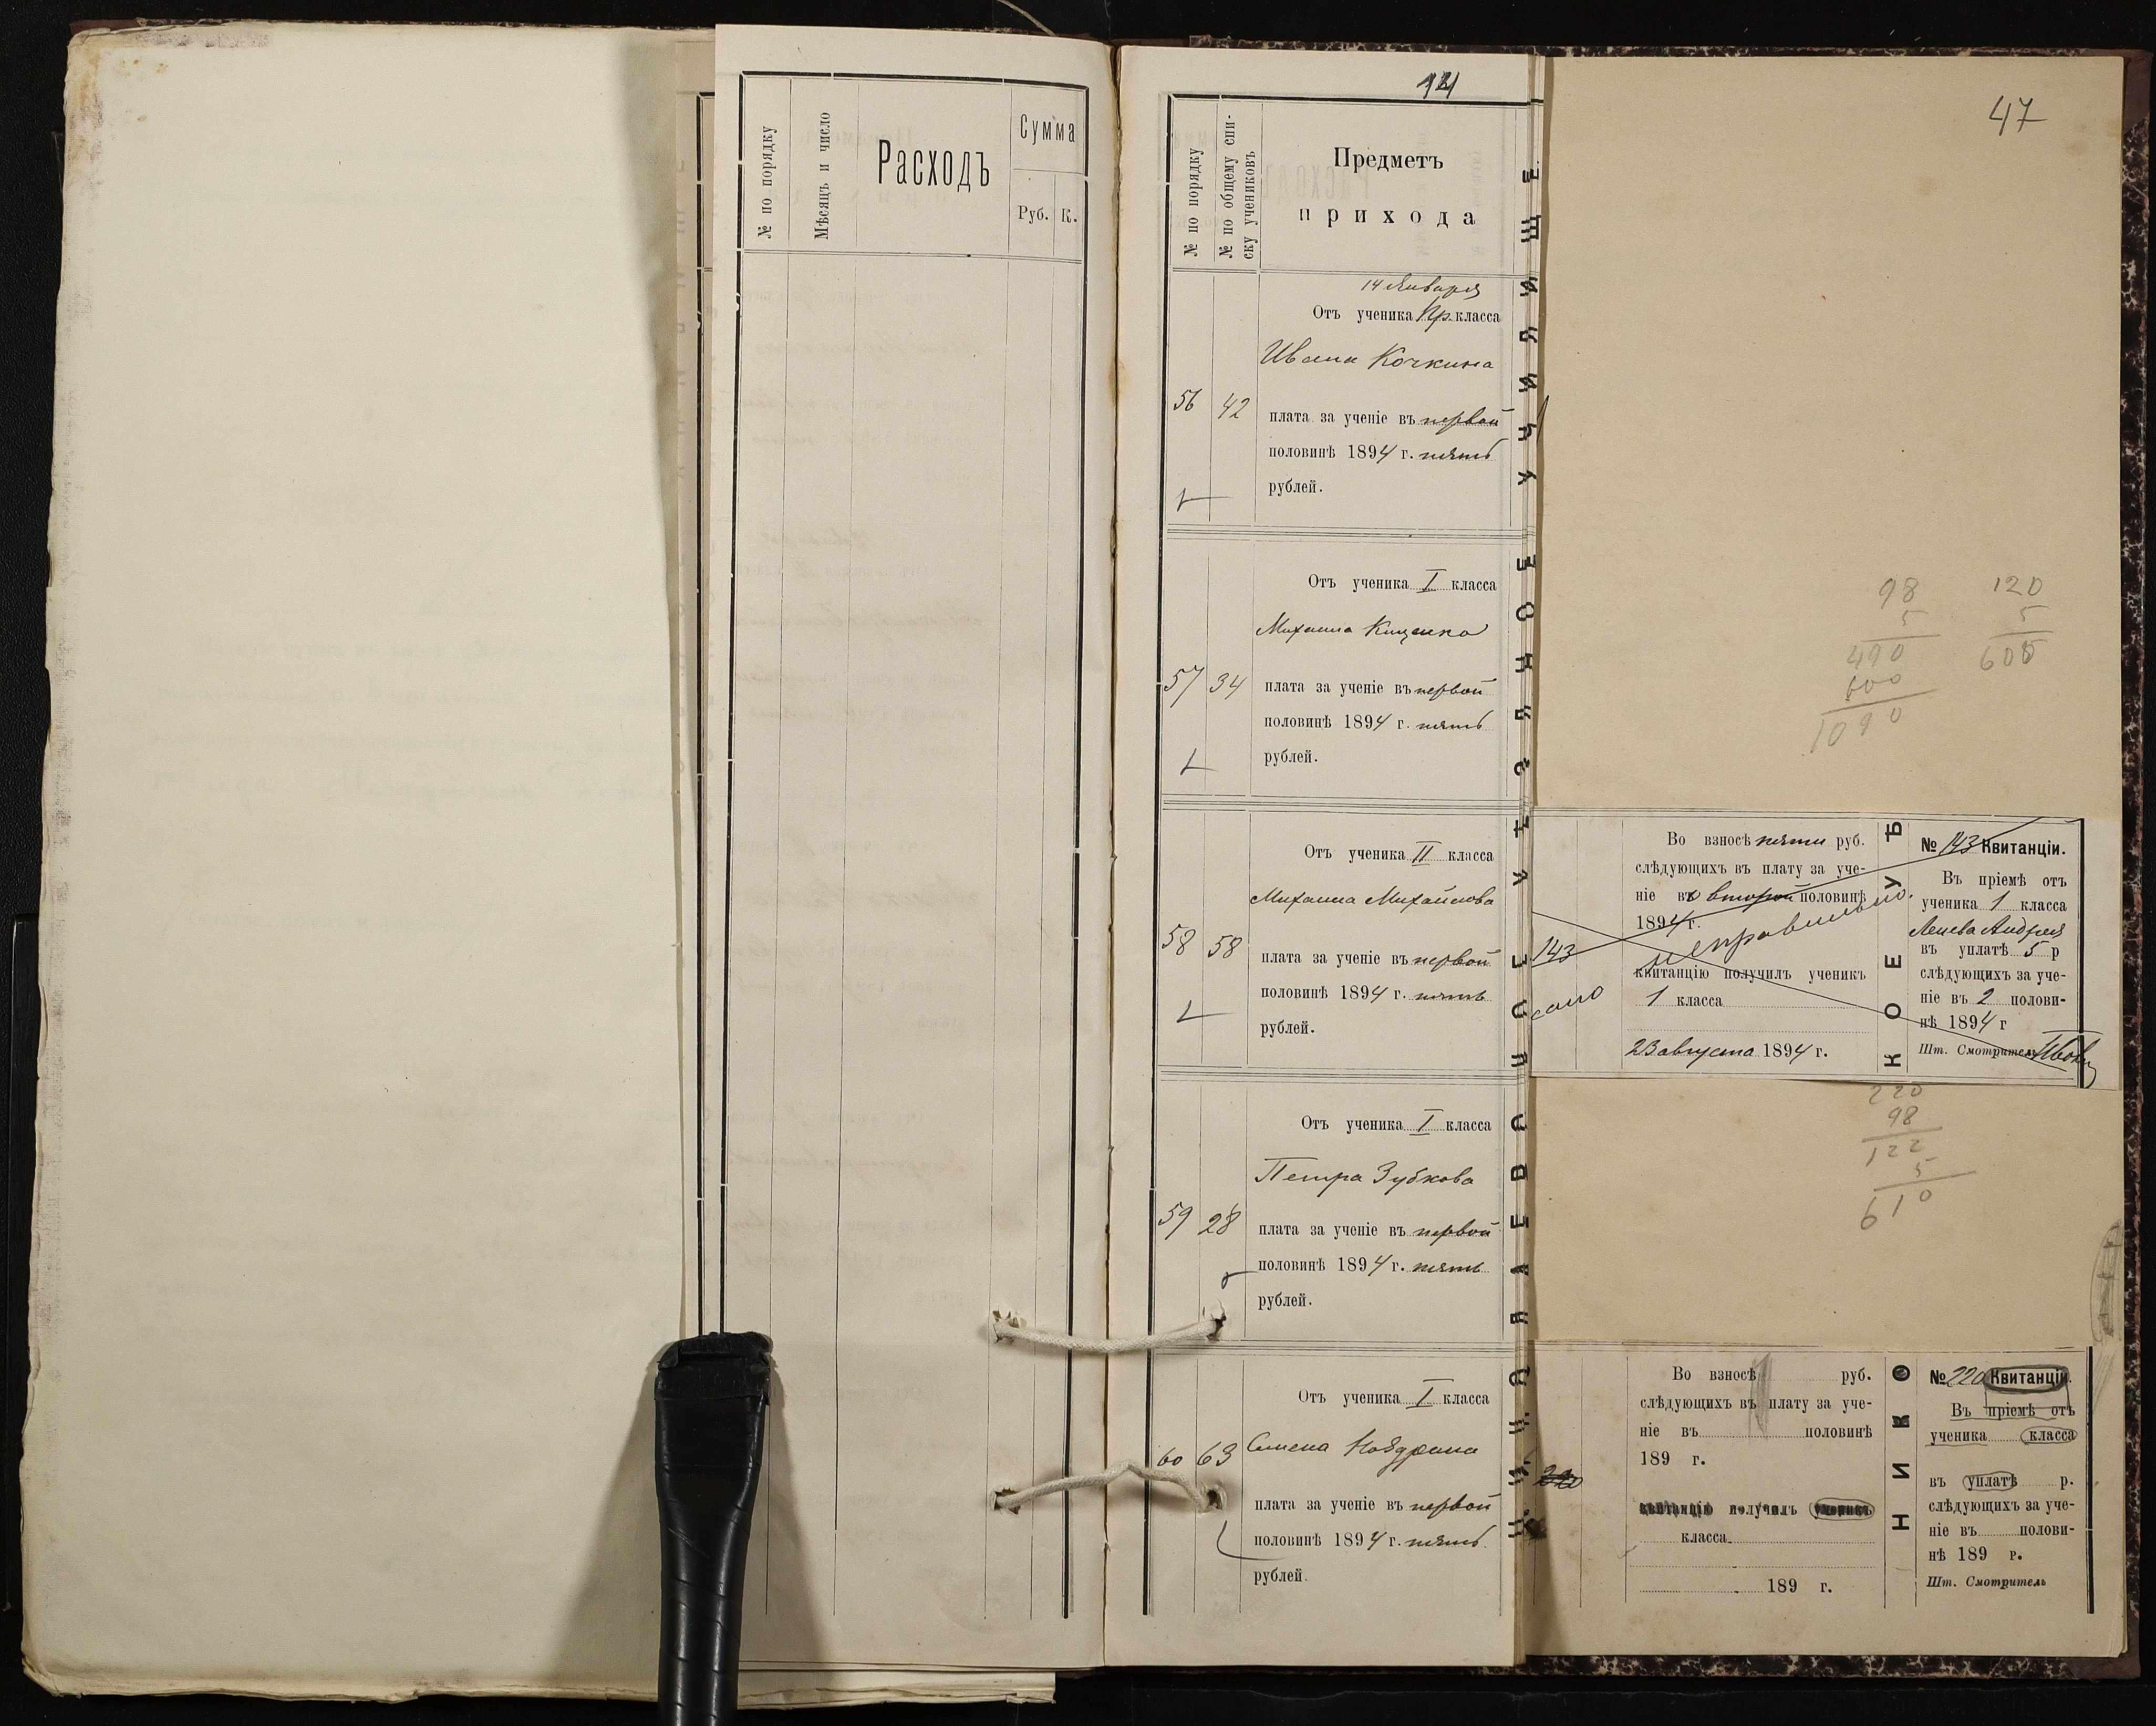 № по порядку
Мѣсяцъ и число
Расходъ
Сумма
Руб.
К.
№ по порядку
№ по общему спи-
ску учениковъ
Предметъ
прихода
14 Января
Отъ ученика Пр. класса
Ивана Кочкина
56 42
плата за ученіе въ первой
половинѣ 1894 г. пять
рублей.
Отъ ученика I класса
Михаила Кищенко
57 34
плата за ученіе въ первой
половинѣ 1894 г. пять
рублей.
Отъ ученика II класса
Михаила Михайлова
58 58
плата за ученіе въ первой
половинѣ 1894 г. пять
рублей.
Отъ ученика I класса
Петра Зубкова
59 28
плата за ученіе въ первой
половинѣ 1894 г. пять
рублей.
Отъ ученика I класса
Семена Ноздрина
60 63
плата за ученіе въ первой
половинѣ 1894 г. пять
рублей.
УѢЗДНОЕ УЧИЛИЩЕ
47
98
5
490
600
1090
120
5
600
143
Во взносѣ пяти руб.
слѣдующихъ въ плату за уче-
ніе во второй половинѣ
1894 г.
неправильно
квитанцію получилъ ученикъ
1 класса
23 августа 1894 г.
№ 143 Квитанціи.
Въ пріемѣ отъ
ученика 1 класса
Андрея
въ уплатѣ 5 р
слѣдующихъ за уче-
ніе въ 2 полови-
нѣ 1894 г
Шт. Смотритель
220
98
122
5
610
220
Во взносѣ руб.
слѣдующихъ въ плату за уче-
ніе въ половинѣ
189 г.
квитанцію получилъ ученикъ
класса
189 г.
№ 220 Квитанціи.
Въ пріемѣ отъ
ученика класса
въ уплатѣ р.
слѣдующихъ за уче-
ніе въ полови-
нѣ 189 г.
Шт. Смотритель